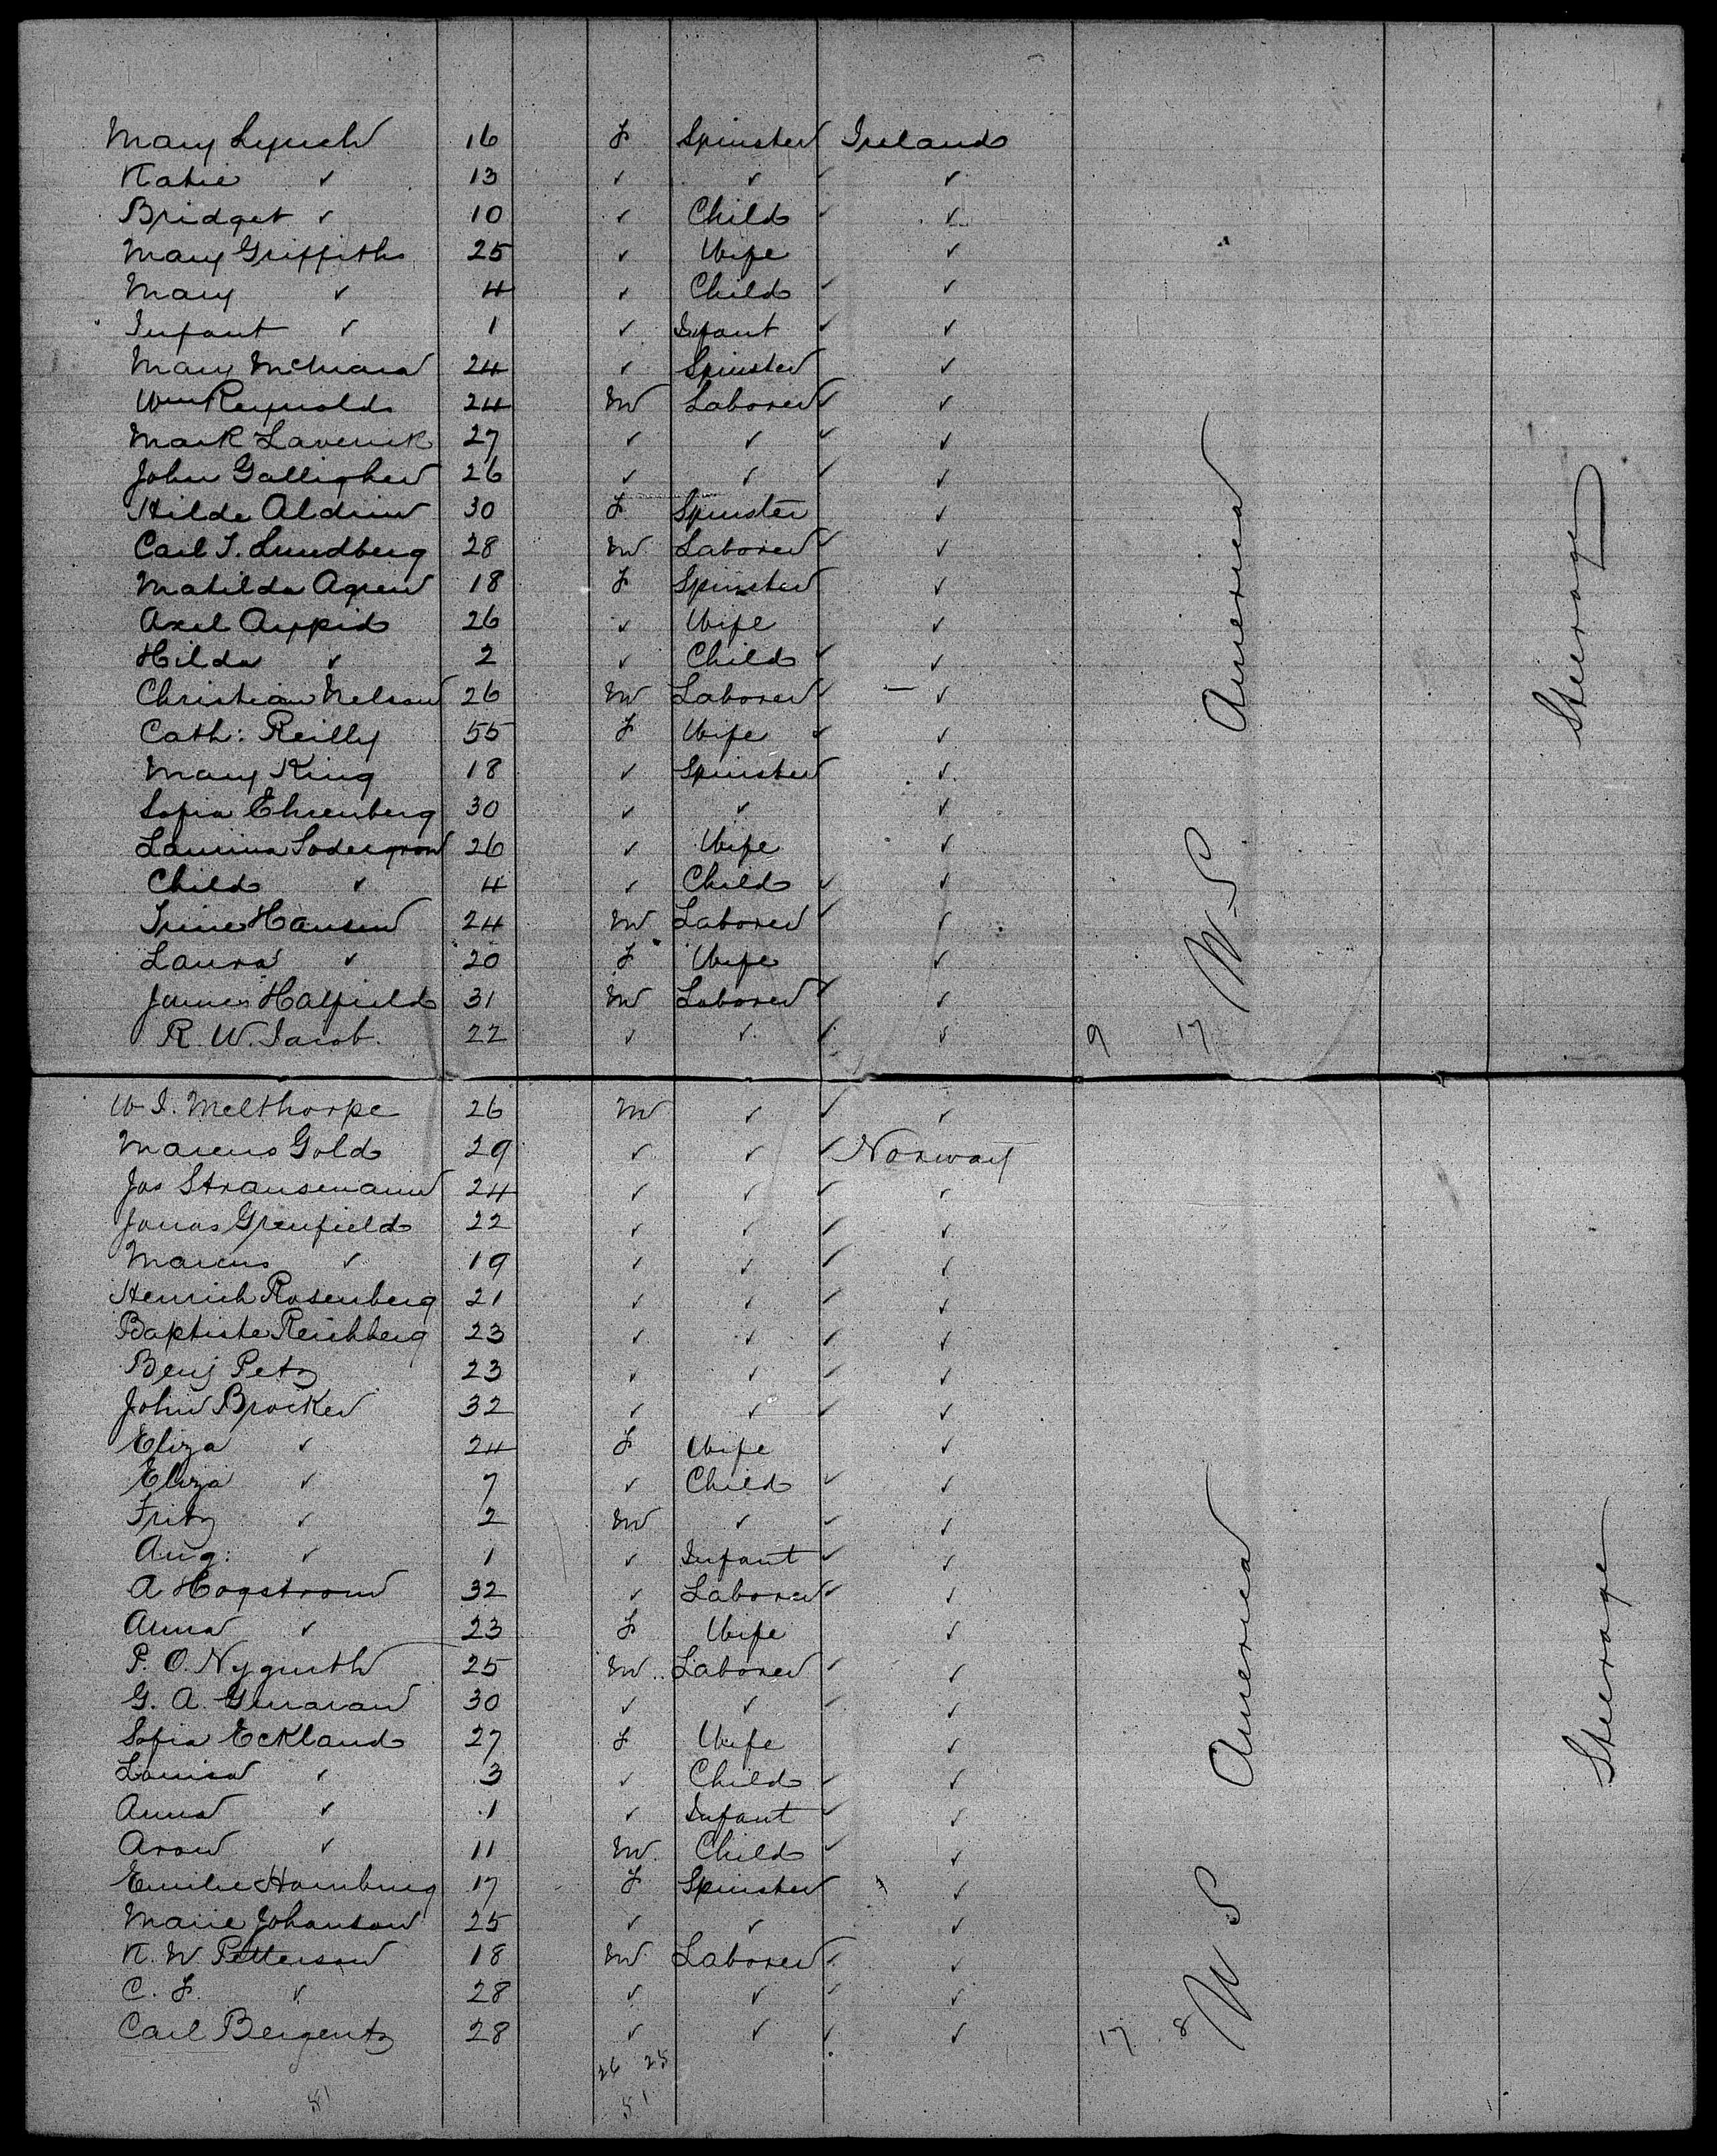 Mary Lynch 16 F Spinster Ireland
Katie ✓ 13 ✓ ✓ ✓ ✓
Bridget ✓ 10 ✓ Child ✓ ✓
Mary Griffiths 25 ✓ Wife ✓
Mary ✓ 4 ✓ Child ✓ ✓
Infant ✓ 1 ✓ Infant ✓ ✓
Mary 24 ✓ Spinster ✓
Wm Reynolds 24 M Laborer ✓ ✓
Mark Laverick 27 ✓ ✓ ✓ ✓
John Galligher 26 ✓ ✓ ✓ ✓
Hilda Aldrin 30 F Spinster ✓
Carl J. Lundberg 28 M Laborer ✓ ✓
Matilda Agren 18 F Spinster ✓
Axel 26 ✓ Wife ✓
Hilda ✓ 2 ✓ Child ✓ ✓
Christian Nelson 26 M Laborer ✓ — ✓
Cath: Reilly 55 F Wife ✓ ✓
Mary King 18 ✓ Spinster ✓
Sofia Ehrenberg 30 ✓ ✓ ✓
Sodergron 26 ✓ Wife ✓
Child ✓ 4 ✓ Child ✓ ✓
Hansen 24 M Laborer ✓ ✓
Laura ✓ 20 F Wife ✓
James Hatfield 31 M Laborer ✓ ✓
R. W. Jacob. 22 ✓ ✓ ✓ ✓ 9 17
U S America
Steerage
W I. Melthorpe 26 M ✓ ✓ ✓
Marcus Gold 29 ✓ ✓ ✓ Norway
Jos Stransemann 24 ✓ ✓ ✓ ✓
Jonas Grenfield 22 ✓ ✓ ✓ ✓
Marcus ✓ 19 ✓ ✓ ✓ ✓
Henrich Rosenberg 21 ✓ ✓ ✓ ✓
Baptiste Reichberg 23 ✓ ✓ ✓ ✓
Benj Petz 23 ✓ ✓ ✓ ✓
John Brocker 32 ✓ ✓ ✓ ✓
Eliza ✓ 24 F Wife ✓
Eliza ✓ 7 ✓ Child ✓ ✓
Fritz ✓ 2 M ✓ ✓ ✓
Aug: ✓ 1 ✓ Infant ✓ ✓
A Hogstrom 32 ✓ Laborer ✓ ✓
Anna ✓ 23 F Wife ✓
P. O. 25 M Laborer ✓ ✓
G. A. 30 ✓ ✓ ✓ ✓
Sofia Eckland 27 F Wife ✓
Louisa ✓ 3 ✓ Child ✓ ✓
Anna ✓ 1 ✓ Infant ✓ ✓
Aron ✓ 11 M Child ✓ ✓
Emilie Hamburg 17 F Spinster ✓
Marie Johanson 25 ✓ ✓ ✓
K. W Petterson 18 M Laborer ✓ ✓
C. F. ✓ 28 ✓ ✓ ✓ ✓
Carl Bergentz 28 ✓ ✓ ✓ ✓ 17 8
U S America
Steerage
26 25
51 51